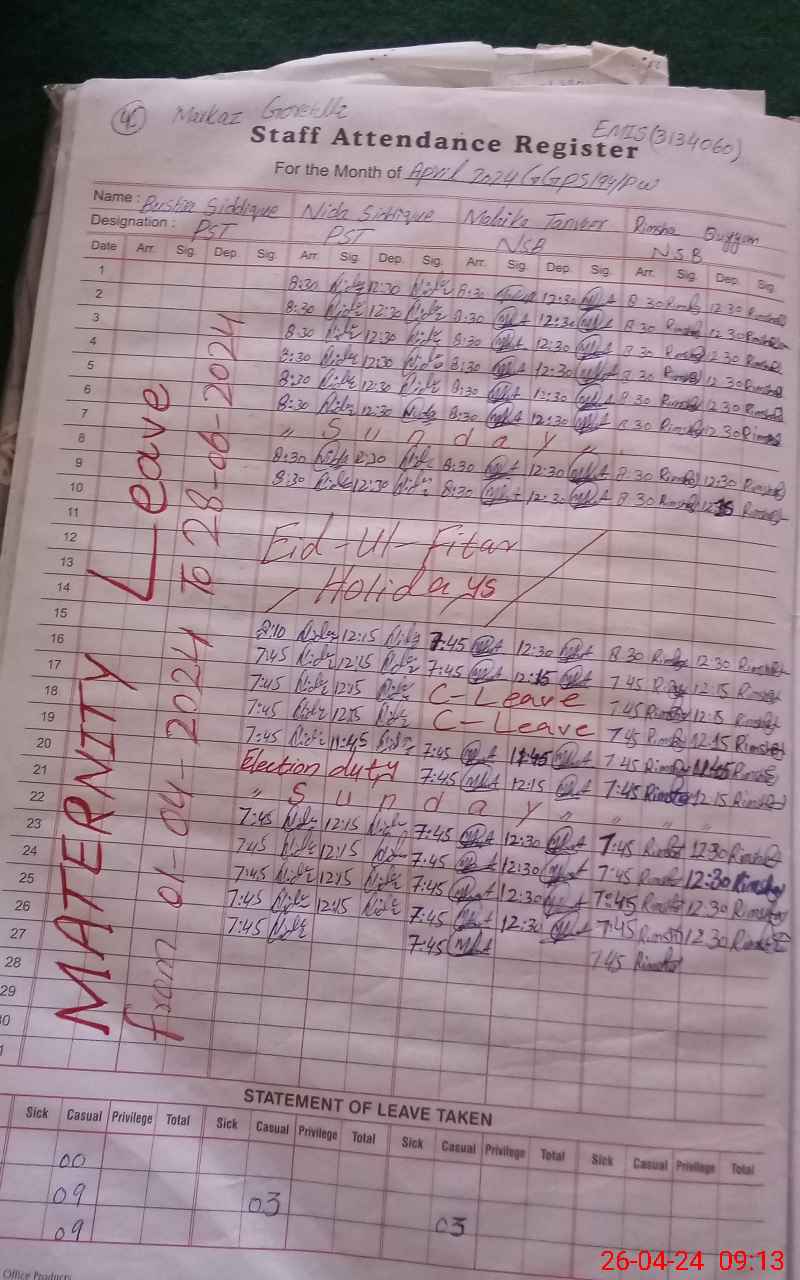 40 Markaz
EMIS(3134060)
Staff Attendance Register
For the Month of April 2024 GGPS/94/PW
Name : Bushra Siddique Nida Siddique Tanveer Rimsha
Designation : PST PST NSB NSB
Date Arr. Sig. Dep. Sig. Arr. Sig. Dep. Sig. Arr. Sig. Dep. Sig. Arr. Sig. Dep. Sig.
1 8:30 Nida 12:30 Nida 8:30 12:30 8 30 Rimsha 12 30 Rimsha
2 8:30 Nida 12:30 Nida 8:30 12:30 8 30 Rimsha 12 30 Rimsha
3 8:30 Nida 12:30 Nida 8:30 12:30 8 30 Rimsha 12 30 Rimsha
4 8:30 Nida 12:30 Nida 8:30 12:30 8 30 Rimsha 12 30 Rimsha
5 8:30 Nida 12:30 Nida 8:30 12:30 8 30 Rimsha 12 30 Rimsha
6 8:30 Nida 12:30 Nida 8:30 12:30 8 30 Rimsha 12 30 Rimsha
7 " Sunday "
8 8:30 Nida 12:30 Nida 8:30 12:30 8 30 Rimsha 12:30 Rimsha
9 8:30 Nida 12:30 Nida 8:30 12:30 8 30 Rimsha Rimsha
10
11
12 Eid-Ul-Fitar
13
14 Holidays
15 8:10 Nida 12:15 Nida 7:45 12:30 8 30 Rimsha 12:30 Rimsha
16 7:45 Nida 12:15 Nida 7:45 12:15 7 45 12 15 Rimsha
17 7:45 Nida 12:15 Nida C-Leave 7:45 Rimsha 12 15 Rimsha
18 7:45 Nida 12:15 Nida C-Leave 7 45 Rimsha 12 15 Rimsha
19 7:45 Nida 11:45 Nida 7:45 11:45 7 45 Rimsha 11:45 Rimsha
20 Election duty 7:45 12:15 7:45 Rimsha 12:15 Rimsha
21 " Sunday " " " "
22 7:45 Nida 12:15 Nida 7:45 12:30 7:45 Rimsha 12 30 Rimsha
23 7:45 Nida 12:15 Nida 7:45 12:30 7:45 Rimsha 12:30 Rimsha
24 7:45 Nida 12:15 Nida 7:45 12:30 7:45 Rimsha 12 30 Rimsha
25 7:45 Nida 12:15 Nida 7:45 12:30 7:45 Rimsha 12 30 Rimsha
26 7:45 Nida 7:45 7 45 Rimsha
27
28
29
0
1
MATERNITY Leave
from 01-04-2024 To 28-06-2024
STATEMENT OF LEAVE TAKEN
Sick Casual Privilege Total Sick Casual Privilege Total Sick Casual Privilege Total Sick Casual Privilege Total
00
09 03 03
09
Office Products
26-04-24 09:13